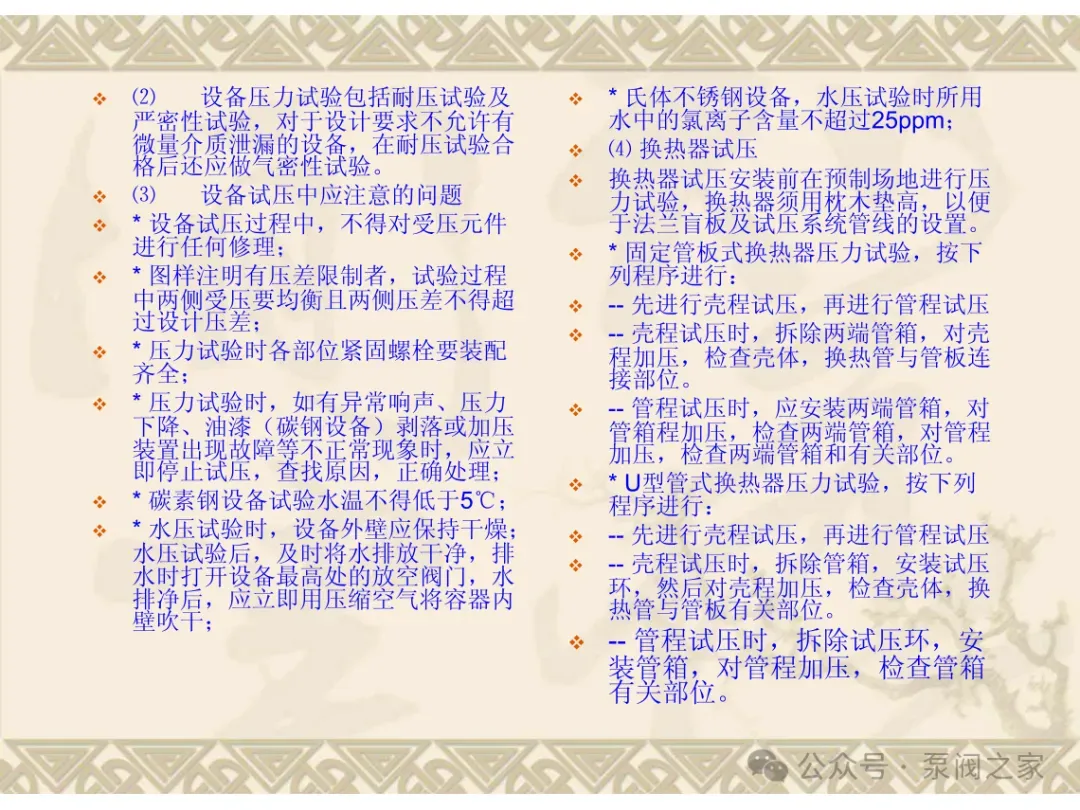 ⑵ 设备压力试验包括耐压试验及
严密性试验，对于设计要求不允许有
微量介质泄漏的设备，在耐压试验合
格后还应做气密性试验。
⑶ 设备试压中应注意的问题
* 设备试压过程中，不得对受压元件
进行任何修理；
* 图样注明有压差限制者，试验过程
中两侧受压要均衡且两侧压差不得超
过设计压差；
* 压力试验时各部位紧固螺栓要装配
齐全；
* 压力试验时，如有异常响声、压力
下降、油漆（碳钢设备）剥落或加压
装置出现故障等不正常现象时，应立
即停止试压，查找原因，正确处理；
* 碳素钢设备试验水温不得低于5℃；
* 水压试验时，设备外壁应保持干燥；
水压试验后，及时将水排放干净，排
水时打开设备最高处的放空阀门，水
排净后，应立即用压缩空气将容器内
壁吹干；
* 氏体不锈钢设备，水压试验时所用
水中的氯离子含量不超过25ppm；
⑷ 换热器试压
换热器试压安装前在预制场地进行压
力试验，换热器须用枕木垫高，以便
于法兰盲板及试压系统管线的设置。
* 固定管板式换热器压力试验，按下
列程序进行：
-- 先进行壳程试压，再进行管程试压
-- 壳程试压时，拆除两端管箱，对壳
程加压，检查壳体，换热管与管板连
接部位。
-- 管程试压时，应安装两端管箱，对
管箱程加压，检查两端管箱，对管程
加压，检查两端管箱和有关部位。
* U型管式换热器压力试验，按下列
程序进行：
-- 先进行壳程试压，再进行管程试压
-- 壳程试压时，拆除管箱，安装试压
环，然后对壳程加压，检查壳体，换
热管与管板有关部位。
-- 管程试压时，拆除试压环，安
装管箱，对管程加压，检查管箱
有关部位。
公众号 · 泵阀之家